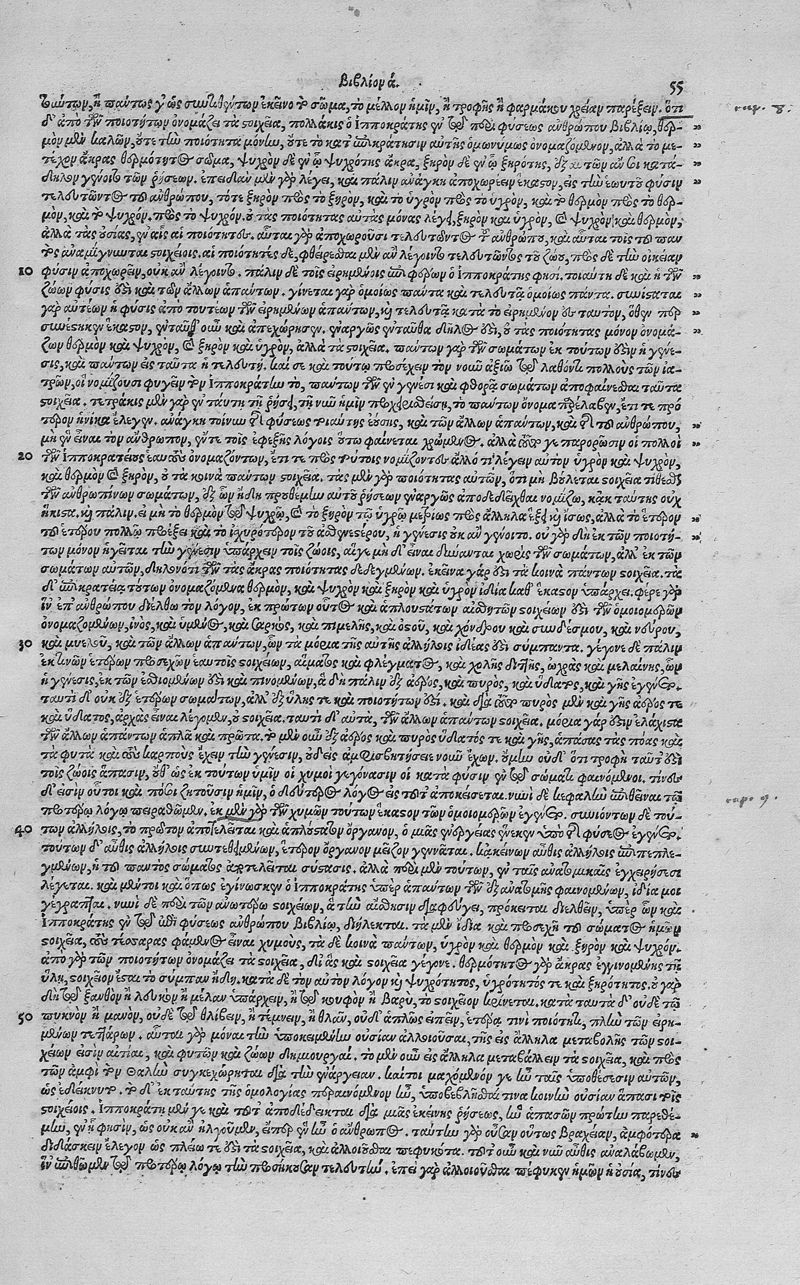 Βιβλίον ά. 55
τούτων, ἢ πάντως γ' ὡς συντιθέντων ἐκεῖνο τὸ σῶμα, τὸ μέλλον ἡμῖν, ἢ τροφῆς ἢ φαρμάκου χρείαν παρέξειν. ὅτι
δ' ἀπὸ τῶν ποιοτήτων ὀνομάζει τὰ στοιχεῖα, πολλάκις ὁ Ἱπποκράτης ἐν τῷ περὶ φύσεως ἀνθρώπου βιβλίῳ, θερ-
μὸν μὲν καλῶν, ὅτε τὴν ποιότητα μόνην, ὅτε τὸ κατ' ἐπικράτησιν αὐτῆς ὁμωνύμως ὀνομαζόμενον, ἀλλὰ τὸ με-
τέχον ἄκρας θερμότητος σῶμα, ψυχρὸν δὲ ἐν ᾧ ψυχρότης ἄκρα, ξηρὸν δὲ ἐν ᾧ ξηρότης, ἐξ αὐτῶν ἂν σοι κατά-
δηλον γένοιτο τῶν ῥήσεων. ἐπειδὰν μὲν γὰρ λέγει, καὶ πάλιν ἀνάγκη ἀποχωρέειν ἕκαστον, εἰς τὴν ἑωυτοῦ φύσιν
τελευτῶντος τοῦ ἀνθρώπου, τό τε ξηρὸν πρὸς τὸ ξηρὸν, καὶ τὸ ὑγρὸν πρὸς τὸ ὑγρὸν, καὶ τὸ θερμὸν πρὸς τὸ θερ-
μὸν, καὶ τὸ ψυχρὸν, πρὸς τὸ ψυχρὸν. οὐ τὰς ποιότητας αὐτὰς μόνας λέγει, ξηρὸν καὶ ὑγρὸν, καὶ ψυχρὸν καὶ θερμὸν,
ἀλλὰ τὰς οὐσίας, ἐν αἷς αἱ ποιότητες. αὗται γὰρ ἀποχωροῦσι τελευτῶντος τοῦ ἀνθρώπου, καὶ αὗται τοῖς τοῦ παν
τὸς ἀναμίγνυνται στοιχείοις. αἱ ποιότητες δὲ, φθείρεσθαι μὲν ἂν λέγοιντο τελευτῶντος τοῦ ζώου, πρὸς δὲ τὴν οἰκείαν
10 φύσιν ἀποχωρεῖν, οὐκ ἂν λέγοιντο. πάλιν δὲ τοῖς εἰρημένοις ἐπιφέρων ὁ Ἱπποκράτης φησί. τοιαύτη δὲ καὶ ἡ τῶν
ζώων φύσις ἐστὶ καὶ τῶν ἄλλων ἁπάντων. γίνεται γὰρ ὁμοίως πάντα καὶ τελευτᾷ ὁμοίως πάντα. συνίσταται
γὰρ αὐτέων ἡ φύσις ἀπὸ τουτέων τῶν εἰρημένων ἁπάντων, καὶ τελευτᾷ κατὰ τὸ εἰρημένον ἐς ταυτὸν, ὅθεν περ
συνέστηκεν ἕκαστον, ἐνταῦθ' οὖν καὶ ἀπεχώρησεν. ἐναργῶς ἐνταῦθα δῆλός ἐστι, οὐ τὰς ποιότητας μόνον ὀνομά-
ζων θερμὸν καὶ ψυχρὸν, καὶ ξηρὸν καὶ ὑγρὸν, ἀλλὰ τὰ στοιχεῖα. πάντων γὰρ τῶν σωμάτων ἐκ τούτων ἐστὶν ἡ γένε-
σις, καὶ πάντων εἰς ταῦτα ἡ τελευτή. καί σε καὶ τούτῳ προσέχειν τὸν νοῦν ἀξιῶ λαθόντι πολλοὺς τῶν ἰα-
τρῶν, οἳ νομίζουσι φυγεῖν τὸν Ἱπποκράτην τὸ, πάντων τῶν ἐν γενέσει καὶ φθορᾷ σωμάτων ἀποφαίνεσθαι ταῦτα
στοιχεῖα. τετράκις μὲν γὰρ ἐν ταύτῃ τῇ ῥήσει, τῇ νῦν ἡμῖν προχειρισθείσῃ, τὸ πάντων ὄνομα περιέλαβεν, ἔτι τε πρό
τερον ἡνίκα ἔλεγεν. ἀνάγκη τοίνυν τῆς φύσεως τοιαύτης ἐούσης, καὶ τῶν ἄλλων ἁπάντων, καὶ τῆς τοῦ ἀνθρώπου,
μὴ ἓν εἶναι τὸν ἄνθρωπον, ἔν τε τοῖς ἐφεξῆς λόγοις οὕτω φαίνεται χρώμενος. ἀλλὰ ὅμως γε παρορῶσιν οἱ πολλοὶ
20 τῶν Ἱπποκρατείους ἑαυτοὺς ὀνομαζόντων, ἔτι τε πρὸς τούτοις νομίζοντες ἄλλό τι λέγειν αὐτὸν ὑγρὸν καὶ ψυχρὸν,
καὶ θερμὸν καὶ ξηρὸν, οὐ τὰ κοινὰ πάντων στοιχεῖα. τὰς μὲν γὰρ ποιότητας αὐτῶν, ὅτι μὴ βούλεται στοιχεῖα τίθεσθαι
τῶν ἀνθρωπίνων σωμάτων, ἐξ ὧν ἤδη προεθέμην αὐτοῦ ῥήσεων ἐναργῶς ἀποδεδεῖχθαι νομίζω, κἀκ ταύτης οὐχ
ἥκιστα. καὶ πάλιν. εἰ μὴ τὸ θερμὸν τῷ ψυχρῷ, καὶ τὸ ξηρὸν τῷ ὑγρῷ μετρίως πρὸς ἄλληλα ἕξει καὶ ἴσως, ἀλλὰ τὸ ἕτερον
τοῦ ἑτέρου πολλῷ προέξει καὶ τὸ ἰσχυρότερον τοῦ ἀσθενεστέρου, ἡ γένεσις οὐκ ἂν γένοιτο. οὐ γὰρ δὴ ἐκ τῶν ποιοτή-
των μόνον ἡγεῖται τὴν γένεσιν ὑπάρχειν τοῖς ζώοις, αἵ γε μηδ' εἶναι δύνανται χωρὶς τῶν σωμάτων, ἀλλ' ἐκ τῶν
σωμάτων αὐτῶν, δηλονότι τῶν τὰς ἄκρας ποιότητας δεδεγμένων. ἐκεῖνα γάρ ἐστι τὰ κοινὰ πάντων στοιχεῖα. τὰ
δ' ἐπικρατείᾳ τούτων ὀνομαζόμενα θερμὸν, καὶ ψυχρὸν καὶ ξηρὸν καὶ ὑγρὸν ἴδια καθ' ἕκαστον ὑπάρχει. φέρε γὰρ
ἵν' ἐπ' ἀνθρώπου διέλθω τὸν λόγον, ἐκ πρώτων οὗτος καὶ ἁπλουστάτων αἰσθητῶν στοιχείων ἐστὶ τῶν ὁμοιομερῶν
ὀνομαζομένων, ἰνὸς, καὶ ὑμένος, καὶ σαρκὸς, καὶ πιμελῆς, καὶ ὀστοῦ, καὶ χόνδρου καὶ συνδέσμου, καὶ νεύρου,
30 καὶ μυελοῦ, καὶ τῶν ἄλλων ἁπάντων, ὧν τὰ μόρια τῆς αὐτῆς ἀλλήλοις ἰδέας ἐστὶ σύμπαντα. γέγονε δὲ πάλιν
ἐκτινῶν ἑτέρων προσεχῶν ἑαυτοῖς στοιχείων, αἵματος καὶ φλέγματος, καὶ χολῆς διττῆς, ὠχρᾶς καὶ μελαίνης, ὧν
ἡ γένεσις, ἐκ τῶν ἐσθιομένων ἐστὶ καὶ πινομένων, ἃ δὴ πάλιν ἐξ ἀέρος, καὶ πυρὸς, καὶ ὕδατος, καὶ γῆς ἐγένετο.
ταυτὶ δ' οὐκ ἐξ ἑτέρων σωμάτων, ἀλλ' ἐξ ὕλης τε καὶ ποιοτήτων ἐστί. καὶ διὰ τοῦτο πυρὸς μὲν καὶ γῆς ἀέρος τε
καὶ ὕδατος, ἀρχὰς εἶναι λέγομεν, οὐ στοιχεῖα. ταυτὶ δ' αὐτὰ, τῶν ἄλλων ἁπάντων στοιχεῖα. μόρια γάρ ἐστιν ἐλάχιστα
τῶν ἄλλων ἁπάντων ἁπλᾶ καὶ πρῶτα. τὸ μὲν οὖν ἐξ ἀέρος καὶ πυρὸς ὕδατός τε καὶ γῆς, ἁπάσας τὰς πόας καὶ
τὰ φυτὰ καὶ τοὺς καρποὺς ἔχειν τὴν γένεσιν, οὐδεὶς ἀμφισβητήσειε νοῦν ἔχων. οὐ μὴν οὐδ' ὅτι τροφὴ ταῦτ' ἐστὶ
τοῖς ζώοις ἅπασιν, οὐδ' ὡς ἐκ τούτων ὑμῖν οἱ χυμοὶ γεγόνασιν οἱ κατὰ φύσιν ἐν τῷ σώματι φαινόμενοι. τίνες
δ' εἰσὶν οὗτοι καὶ πόσοι ζητοῦσιν ἡμῖν, ὁ δεύτερος λόγος εἰς τοῦτ' ἀπόκεισεται. νυνὶ δὲ κεφαλὴν ἐπιθεῖναι τῷ
προτέρῳ λόγῳ πειραθῶμεν. ἐκ μὲν γὰρ τῶν χυμῶν τούτων ἕκαστον τῶν ὁμοιομερῶν ἐγένετο. συνιόντων δὲ τού-
40 των ἀλλήλοις, τὸ πρῶτον ἀποτελεῖται καὶ ἁπλούστατον ὄργανον, ὃ μιᾶς ἐνεργείας ἕνεκεν ὑπὸ τῆς φύσεως ἐγένετο.
τούτων δ' αὖθις ἀλλήλοις συντεθεμένων, ἕτερον ὄργανον μεῖζον γεννᾶται. κἀκείνων αὖθις ἀλλήλοις ἐπιπεπλε-
γμένων, ἡ τοῦ παντὸς σώματος ἀποτελεῖται σύστασις. ἀλλὰ περὶ μὲν τούτων, ἐν ταῖς ἀνατομικαῖς ἐγχειρήσεσι
λέγεται. καὶ μέντοι καὶ ὅπως ἐγίνωσκεν ὁ Ἱπποκράτης ὑπὲρ ἁπάντων τῶν ἐξ ἀνατομῆς φαινομένων, ἰδίᾳ μοι
γέγραπται. νυνὶ δὲ περὶ τῶν ἀνωτέρω στοιχείων, ἃ τὴν αἴσθησιν διαφεύγει, πρόκειται διελθεῖν, ὑπὲρ ὧν καὶ
Ἱπποκράτης ἐν τῷ περὶ φύσεως ἀνθρώπου βιβλίῳ, διήλεκται. τὰ μὲν ἴδια καὶ προσεχῆ τοῦ σώματος ἡμῶν
στοιχεῖα, τοὺς τέσσαρας φάμενος εἶναι χυμοὺς, τὰ δὲ κοινὰ πάντων, ὑγρὸν καὶ θερμὸν καὶ ξηρὸν καὶ ψυχρὸν.
ἀπὸ γὰρ τῶν ποιοτήτων ὀνομάζει τὰ στοιχεῖα, δι' ἃς καὶ στοιχεῖα γέγονε. θερμότητος γὰρ ἄκρας ἐγγινομένης τῇ
ὕλῃ, στοιχεῖον ἔσται τὸ σύμπαν ἤδη. κατὰ δὲ τὸν αὐτὸν λόγον καὶ ψυχρότητος, ὑγρότητός τε καὶ ξηρότητος. οὐ γὰρ
δὴ τῷ ξανθὸν ἢ λευκὸν ἢ μέλαν ὑπάρχειν, ἢ τῷ κοῦφον ἢ βαρὺ, τὸ στοιχεῖον κρίνεται. κατὰ ταυτὰ δ' οὐδὲ τῷ
50 πυκνὸν ἢ μανὸν, οὐδὲ τῷ θλίβειν, ἢ τέμνειν, ἢ θλᾶν, οὐδ' ἁπλῶς εἰπεῖν, ἑτέρᾳ τινὶ ποιότητι, πλὴν τῶν εἰρη-
μένων τεττάρων. αὗται γὰρ μόναι τὴν ὑποκειμένην οὐσίαν ἀλλοιοῦσαι, τῆς εἰς ἄλληλα μεταβολῆς τῶν στοι-
χείων εἰσὶν αἰτίαι, καὶ φυτῶν καὶ ζώων δημιουργαί. τὸ μὲν οὖν εἰς ἄλληλα μεταβάλλειν τὰ στοιχεῖα, καὶ πρὸς
τῶν ἀμφὶ τὸν Θαλῆν συγκεχώρηται διὰ τὴν ἐνάργειαν. καίτοι μαχόμενόν γε ἦν ταῖς ὑποθέσεσιν αὐτῶν,
ὡς ἐδείκνυτο. τὸ δ' ἐκ ταύτης τῆς ὁμολογίας περαινόμενον ἦν, ὑποβεβλῆσθαί τινα κοινὴν οὐσίαν ἅπασι τοῖς
στοιχείοις. Ἱπποκράτει μὲν γε καὶ τοῦτ' ἀποδέδεικται διὰ μιᾶς ἐκείνης ῥήσεως, ἣν ἁπασῶν πρώτην παρεθέ-
μην, ἐν ᾗ φησὶν, ὡς οὐκ ἂν ἠλγοῦμεν, εἴπερ ἓν ἦν ὁ ἄνθρωπος. ταύτην γὰρ οὖσαν οὕτως βραχεῖαν, ἀμφότερα
διδάσκειν ἔλεγον ὡς πλείω τέ ἐστι τὰ στοιχεῖα, καὶ ἀλλοιοῦσθαι πεφυκότα. τοῦτ' οὖν καὶ νῦν αὖθις ἀναλάβωμεν,
ἵν' ἐπιθῶμεν τῷ προτέρῳ λόγῳ τὴν προσήκουσαν τελευτήν. ἐπεὶ γὰρ ἀλλοιοῦσθαι πέφυκεν ἡμῶν ἡ οὐσία, τίνες